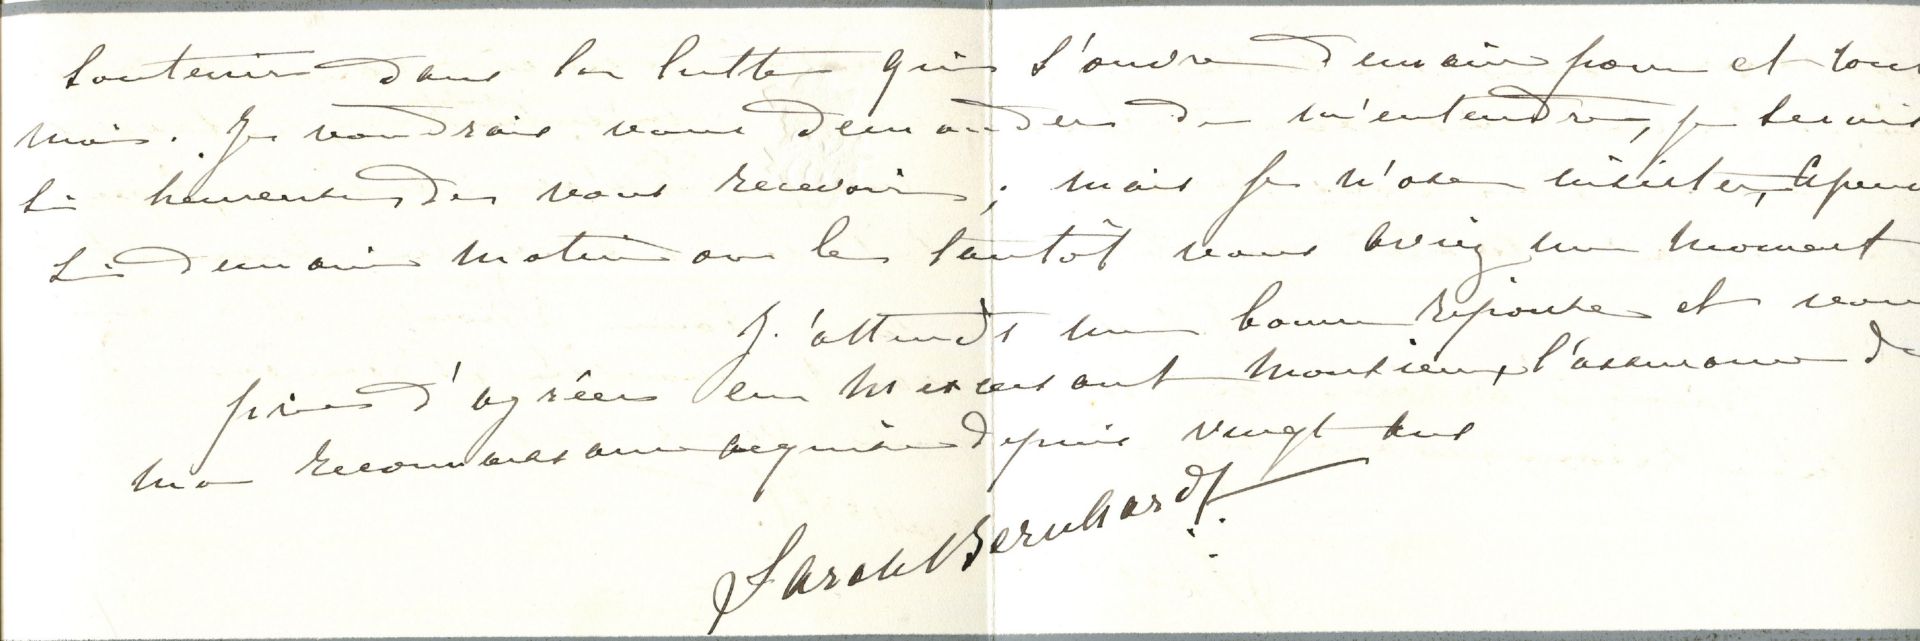 soutenir dans la lutte qui s'ouvre demain pour et contre
moi. Je voudrais vous demander de m'entendre, je serais
si heureuse de vous recevoir; mais je n'ose insister,
si demain matin ou le tantôt vous aviez un moment
J'attends une bonne réponse et vous
prie d'agréer en m'excusant Monsieur, l'assurance de
ma reconnaissance acquise depuis vingt ans
Sarah Bernhardt